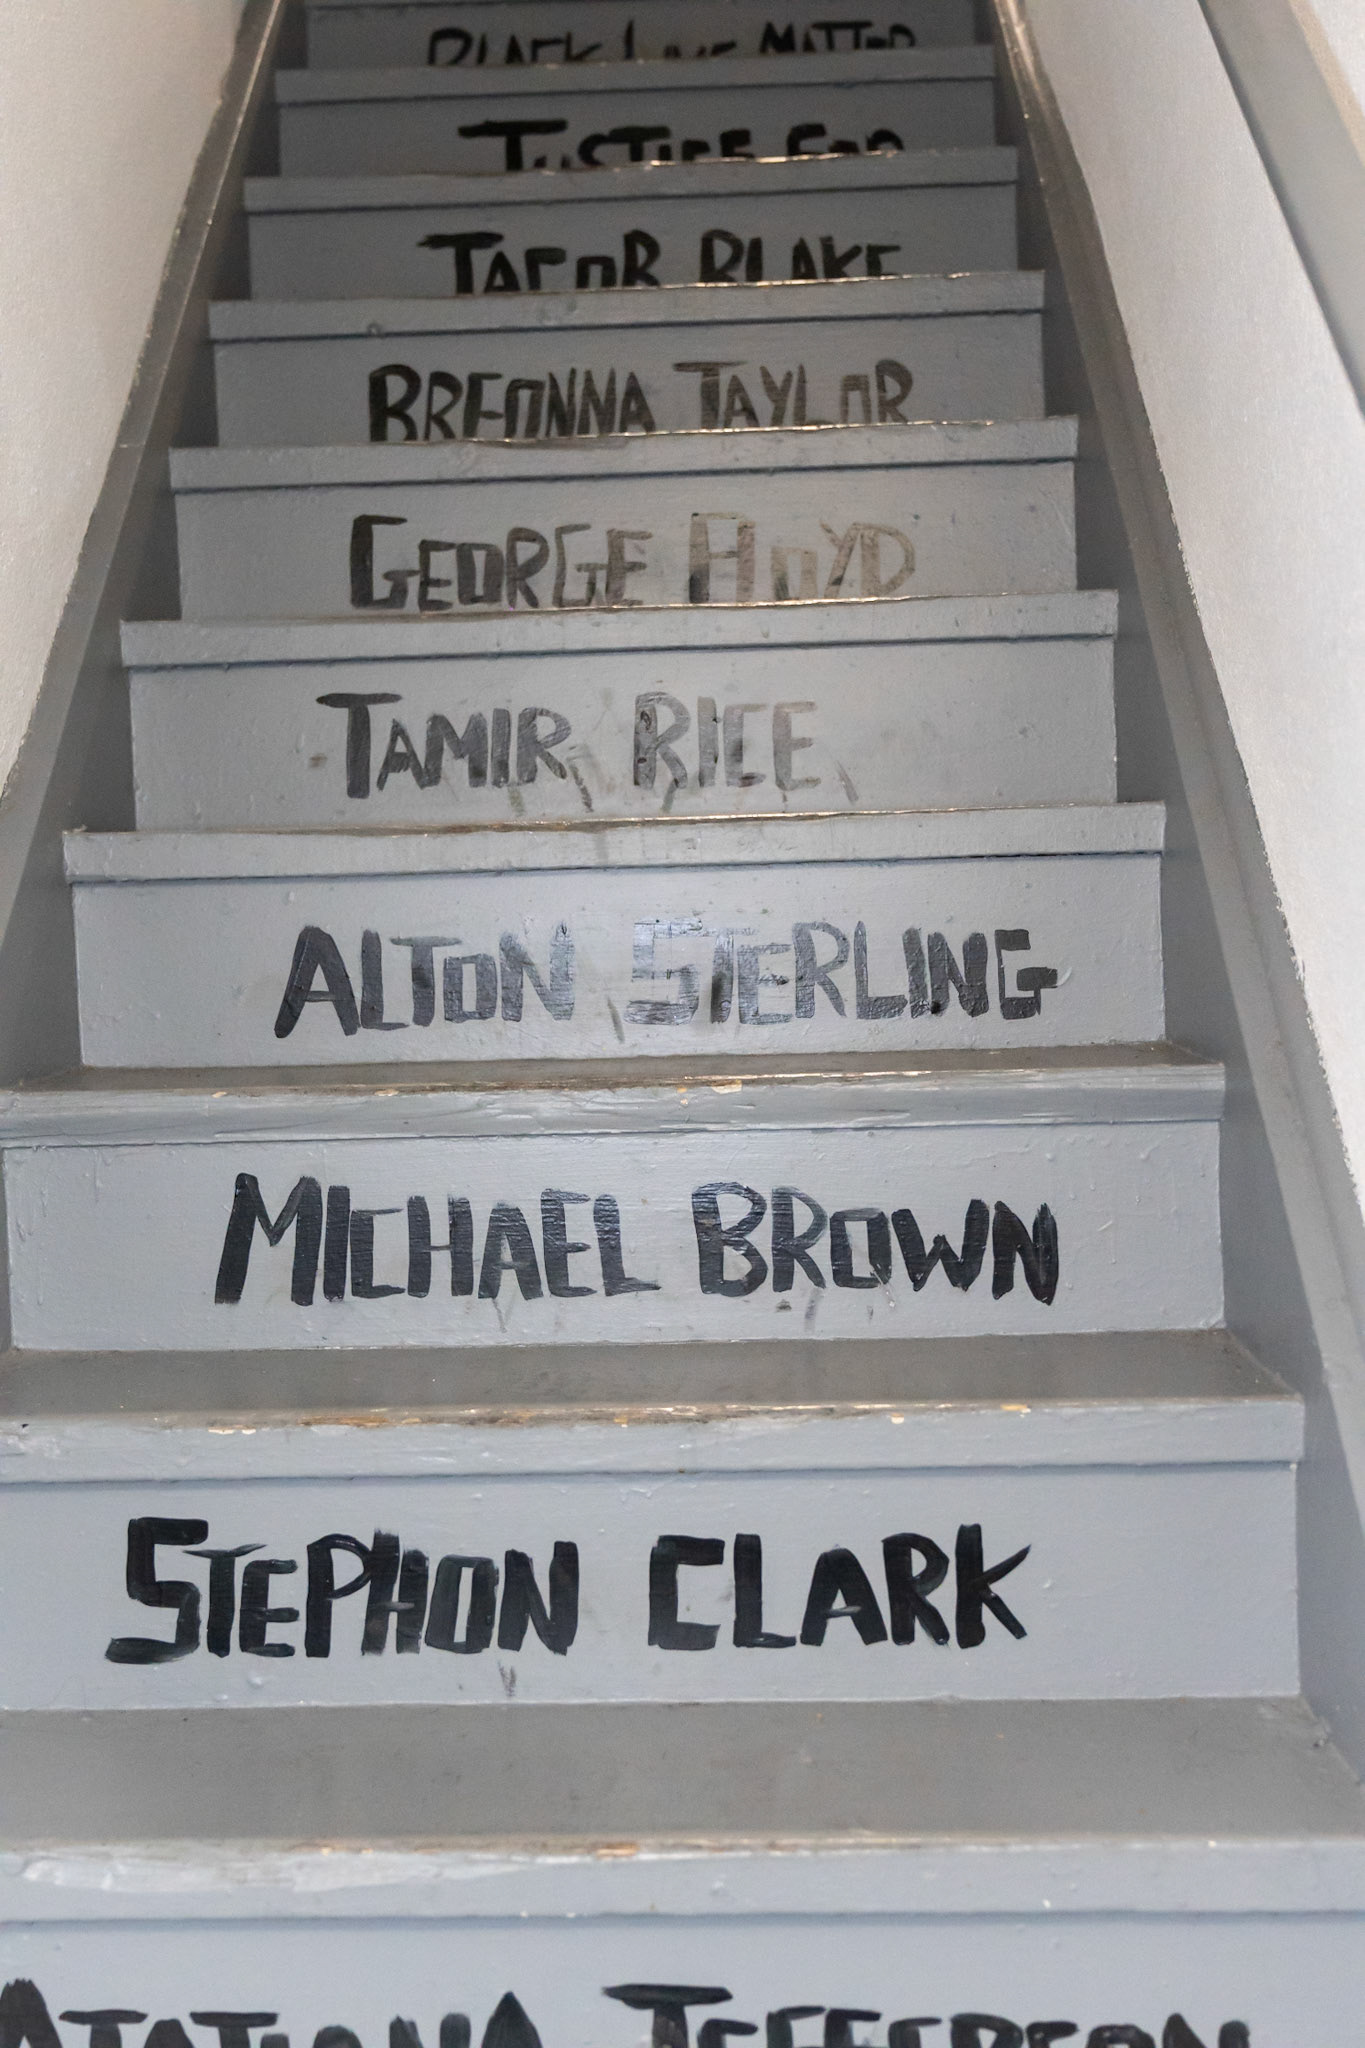 BLACK LIVE MATTER
JUSTICE FOR
JACOB BLAKE
BREONNA TAYLOR
GEORGE FLOYD
TAMIR RICE
ALTON STERLING
MICHAEL BROWN
STEPHON CLARK
ATATIANA JEFFERSON